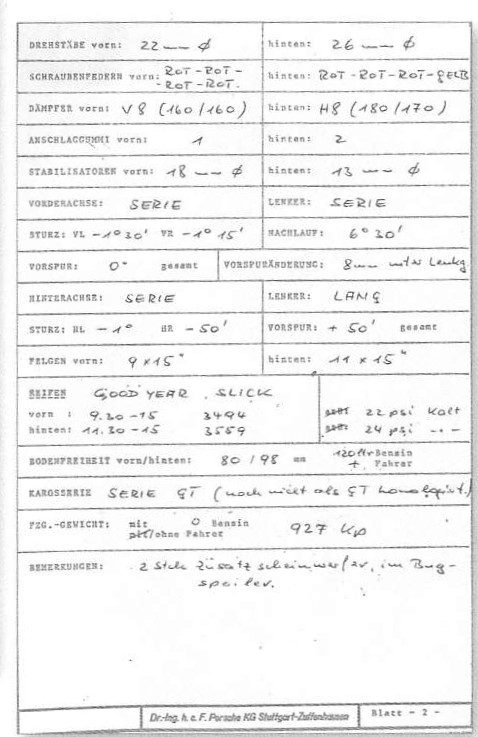 DREHSTÄBE vorn: 22 mm ø hinten: 26 mm ø
SCHRAUBENFEDERN vorn: ROT-ROT- hinten: ROT-ROT-ROT-GELB
-ROT-ROT.
DÄMPFER vorn: V8 (160/160) hinten: H8 (180/170)
ANSCHLAGGUMMI vorn: 1 hinten: 2
STABILISATOREN vorn: 18 mm ø hinten: 13 mm ø
VORDERACHSE: SERIE LENKER: SERIE
STURZ: VL -1° 30' VR -1° 15' NACHLAUF: 6° 30'
VORSPUR: 0° gesamt VORSPURÄNDERUNG: 8mm unter Lenkg.
HINTERACHSE: SERIE LENKER: LANG
STURZ: HL -1° HR -50' VORSPUR: + 50' gesamt
FELGEN vorn: 9 x 15" hinten: 11 x 15"
REIFEN GOOD YEAR SLICK
vorn : 9.20-15 3494 22 psi Kalt
hinten: 11.30-15 3559 24 psi -"-
BODENFREIHEIT vorn/hinten: 80 / 98 mm 120 ltr Benzin
+ Fahrer
KAROSSERIE SERIE GT (noch nicht als GT homologiert.)
FZG.-GEWICHT: mit 0 Benzin 927 Kp
mit/ohne Fahrer
BEMERKUNGEN: 2 Stck Zusatzscheinwerfer, im Bug-
spoiler.
Dr.-Ing. h. c. F. Porsche KG Stuttgart-Zuffenhausen Blatt - 2 -